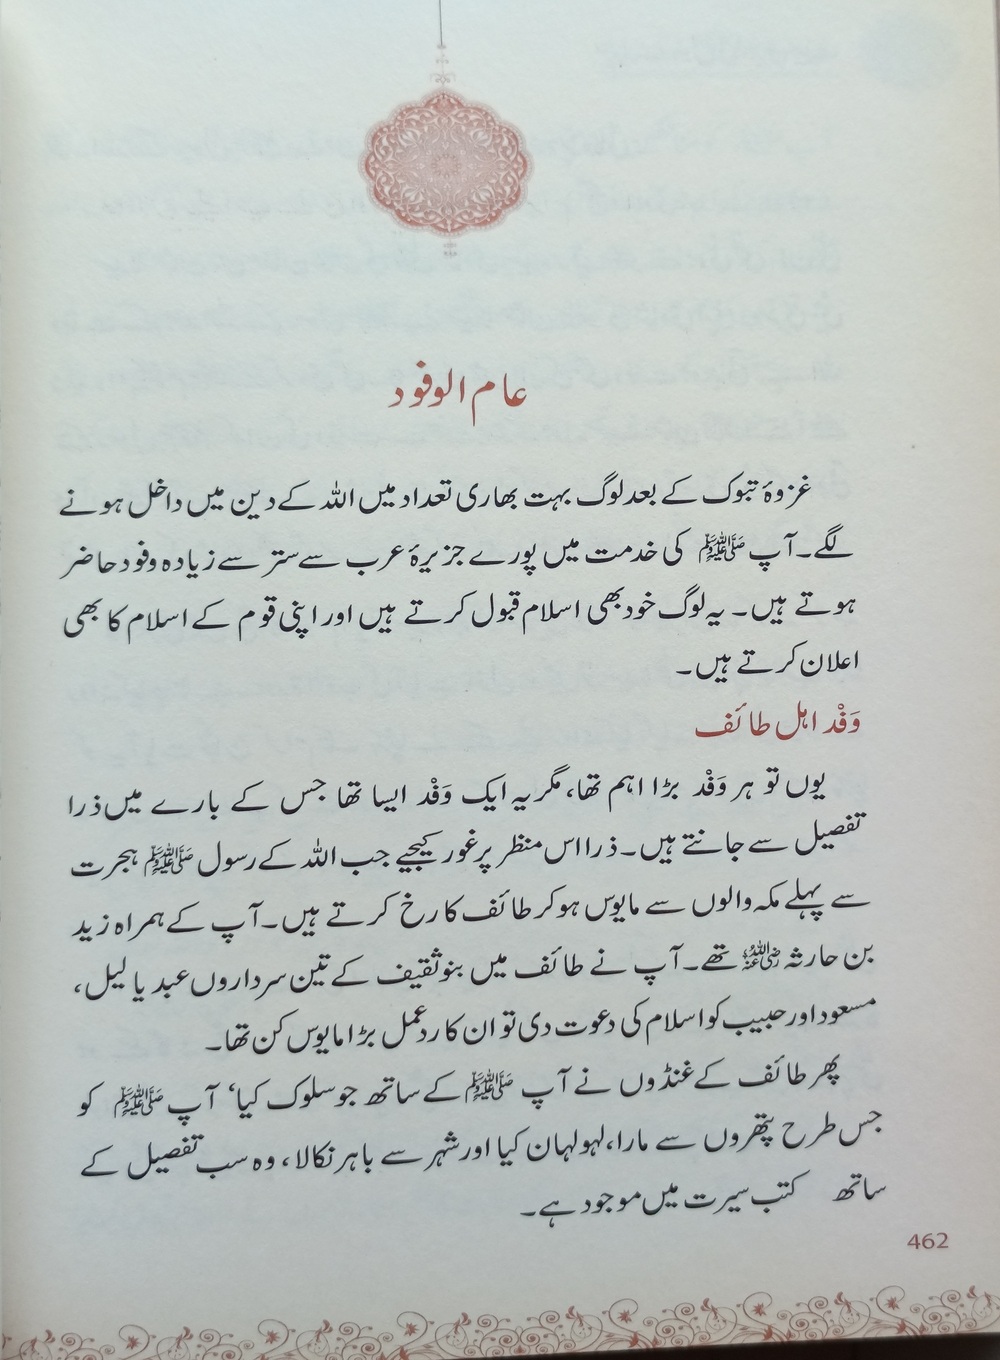 عام الوفود
غزوۂ تبوک کے بعد لوگ بہت بھاری تعداد میں اللہ کے دین میں داخل ہونے
لگے۔ آپ ﷺ کی خدمت میں پورے جزیرۂ عرب سے ستر سے زیادہ وفود حاضر
ہوتے ہیں۔ یہ لوگ خود بھی اسلام قبول کرتے ہیں اور اپنی قوم کے اسلام کا بھی
اعلان کرتے ہیں۔
وَفْد اہل طائف
یوں تو ہر وَفْد بڑا اہم تھا، مگر یہ ایک وَفْد ایسا تھا جس کے بارے میں ذرا
تفصیل سے جانتے ہیں۔ ذرا اس منظر پر غور کیجیے جب اللہ کے رسول ﷺ ہجرت
سے پہلے مکہ والوں سے مایوس ہو کر طائف کا رخ کرتے ہیں۔ آپ کے ہمراہ زید
بن حارثہ رضی اللہ عنہ تھے۔ آپ نے طائف میں بنو ثقیف کے تین سرداروں عبد یا لیل،
مسعود اور حبیب کو اسلام کی دعوت دی تو ان کا ردعمل بڑا مایوس کن تھا۔
پھر طائف کے غنڈوں نے آپ ﷺ کے ساتھ جو سلوک کیا‘ آپ ﷺ کو
جس طرح پتھروں سے مارا، لہولہان کیا اور شہر سے باہر نکالا، وہ سب تفصیل کے
ساتھ کتب سیرت میں موجود ہے۔
462